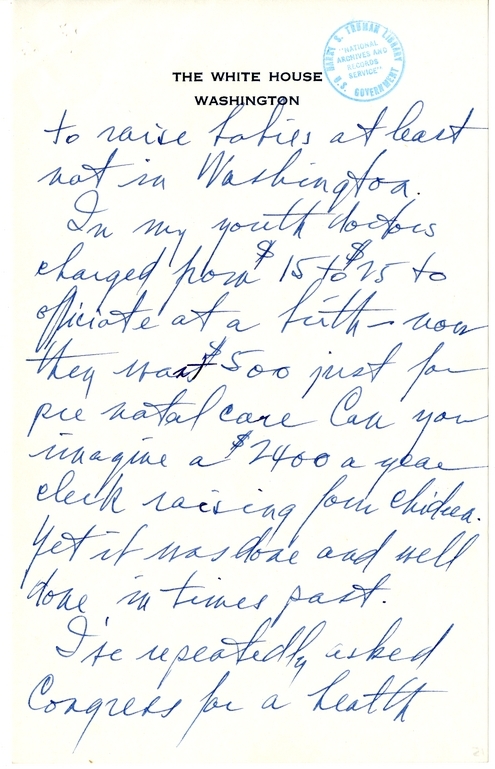 THE WHITE HOUSE
WASHINGTON
HARRY S. TRUMAN LIBRARY
"NATIONAL
ARCHIVES AND
RECORDS
SERVICE"
U.S. GOVERNMENT
to raise babies at least
not in Washington.
In my youth doctors
charged from $15 to $25 to
officiate at a birth—now
they want $500 just for
pre natal care Can you
imagine a $2400 a year
clerk raising four children.
Yet it was done and well
done in times past.
I've repeatedly asked
Congress for a health